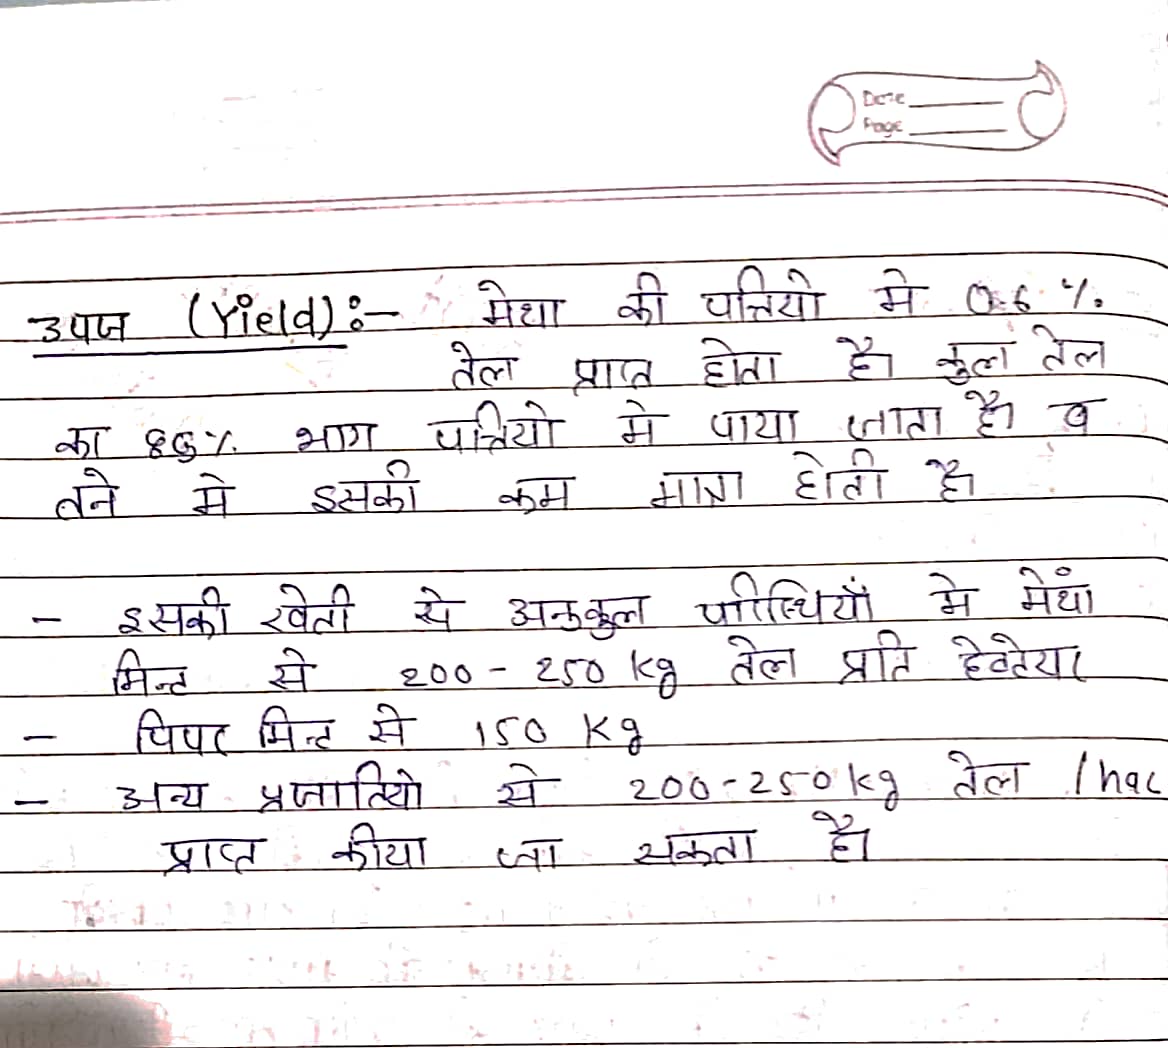 Date
Page
उपज (Yield):- मेथा की पत्तियो मे 0.6 %.
तेल प्राप्त होता है। कुल तेल
का 86%. भाग पत्तियो मे पाया जाता है। व
तने मे इसकी कम मात्रा होती है।
- इसकी खेती से अनुकुल परिस्थियाँ मे मेथां
मिन्ट से 200-250 kg तेल प्रति हेक्टेयर
- पिपर मिन्ट से 150 kg
- अन्य प्रजातियो से 200-250 kg तेल /hac
प्राप्त कीया जा सकता है।